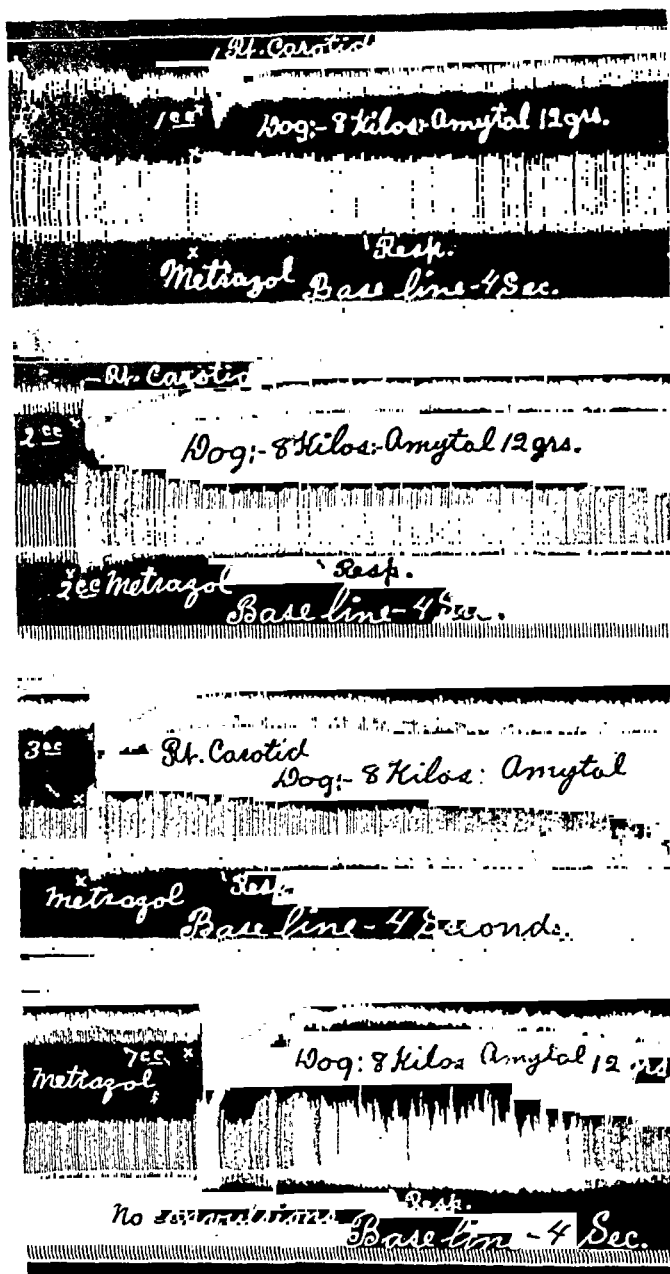 Rt. Carotid
1cc
Dog:- 8 Kilos:- Amytal 12 grs.
Resp.
Metrazol
Base line - 4 Sec.
Rt. Carotid
2 cc
Dog:- 8 Kilos:- Amytal 12 grs.
Resp.
2cc Metrazol
Base line - 4 Sec.
3 cc
Rt. Carotid
Dog:- 8 Kilos: Amytal
Resp.
Metrazol
Base line - 4 Seconds.
7 cc.
Dog: 8 Kilos Amytal 12 grs
Metrazol
Resp.
No convulsions
Base line - 4 Sec.